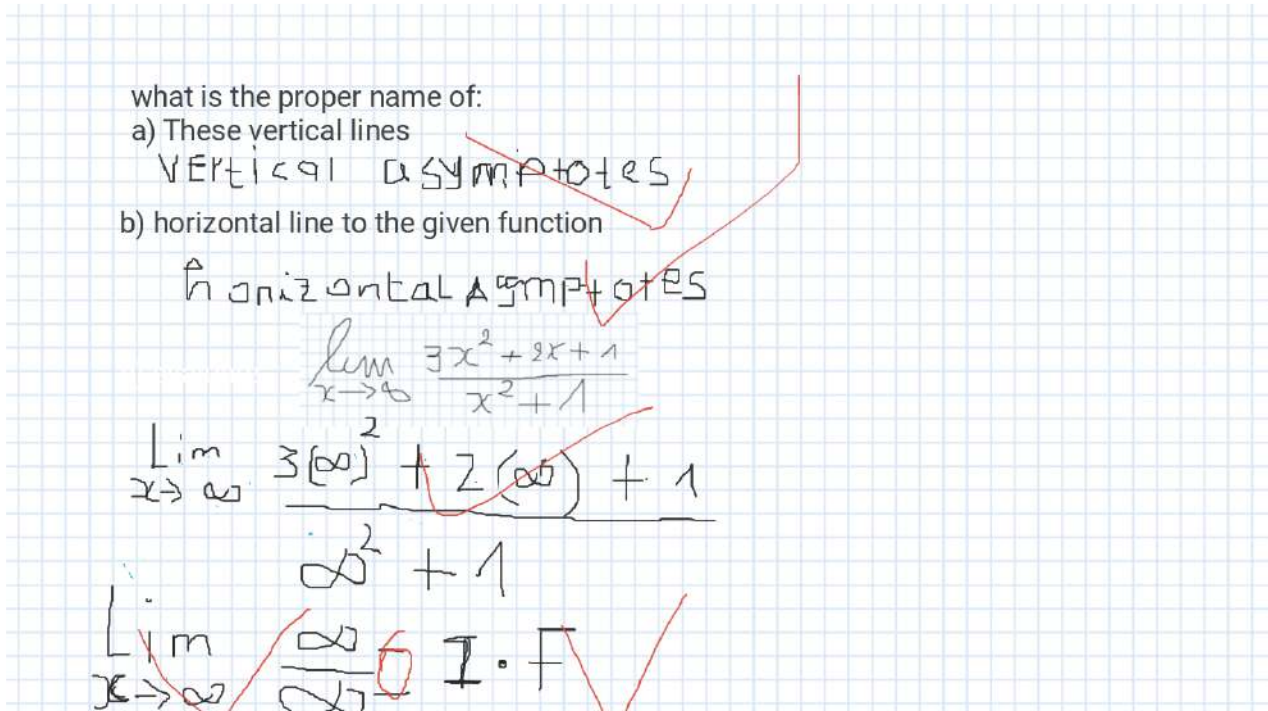 what is the proper name of:
a) These vertical lines
VErtical asymptotes
b) horizontal line to the given function
horizontal Asymptotes
lim 3x² + 2x + 1
x→∞ x² + 1
Lim 3(∞)² + 2(∞) + 1
x→∞ ∞² + 1
Lim ∞ = I.F
x→∞ ∞